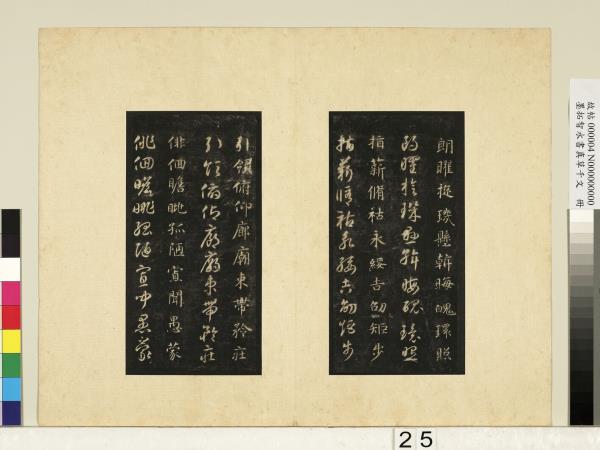 朗曜旋璣懸斡晦魄環照
朗曜旋璣懸斡晦魄環照
指薪脩祜永綏吉劭矩步
指薪脩祜永綏吉劭矩步
引領俯仰廊廟束帶矜莊
引領俯仰廊廟束帶矜莊
俳佪瞻眺孤陋寡聞愚蒙
俳佪瞻眺孤陋寡聞愚蒙
故帖 000004 N000000000
墨拓智永書真草千文 冊
25